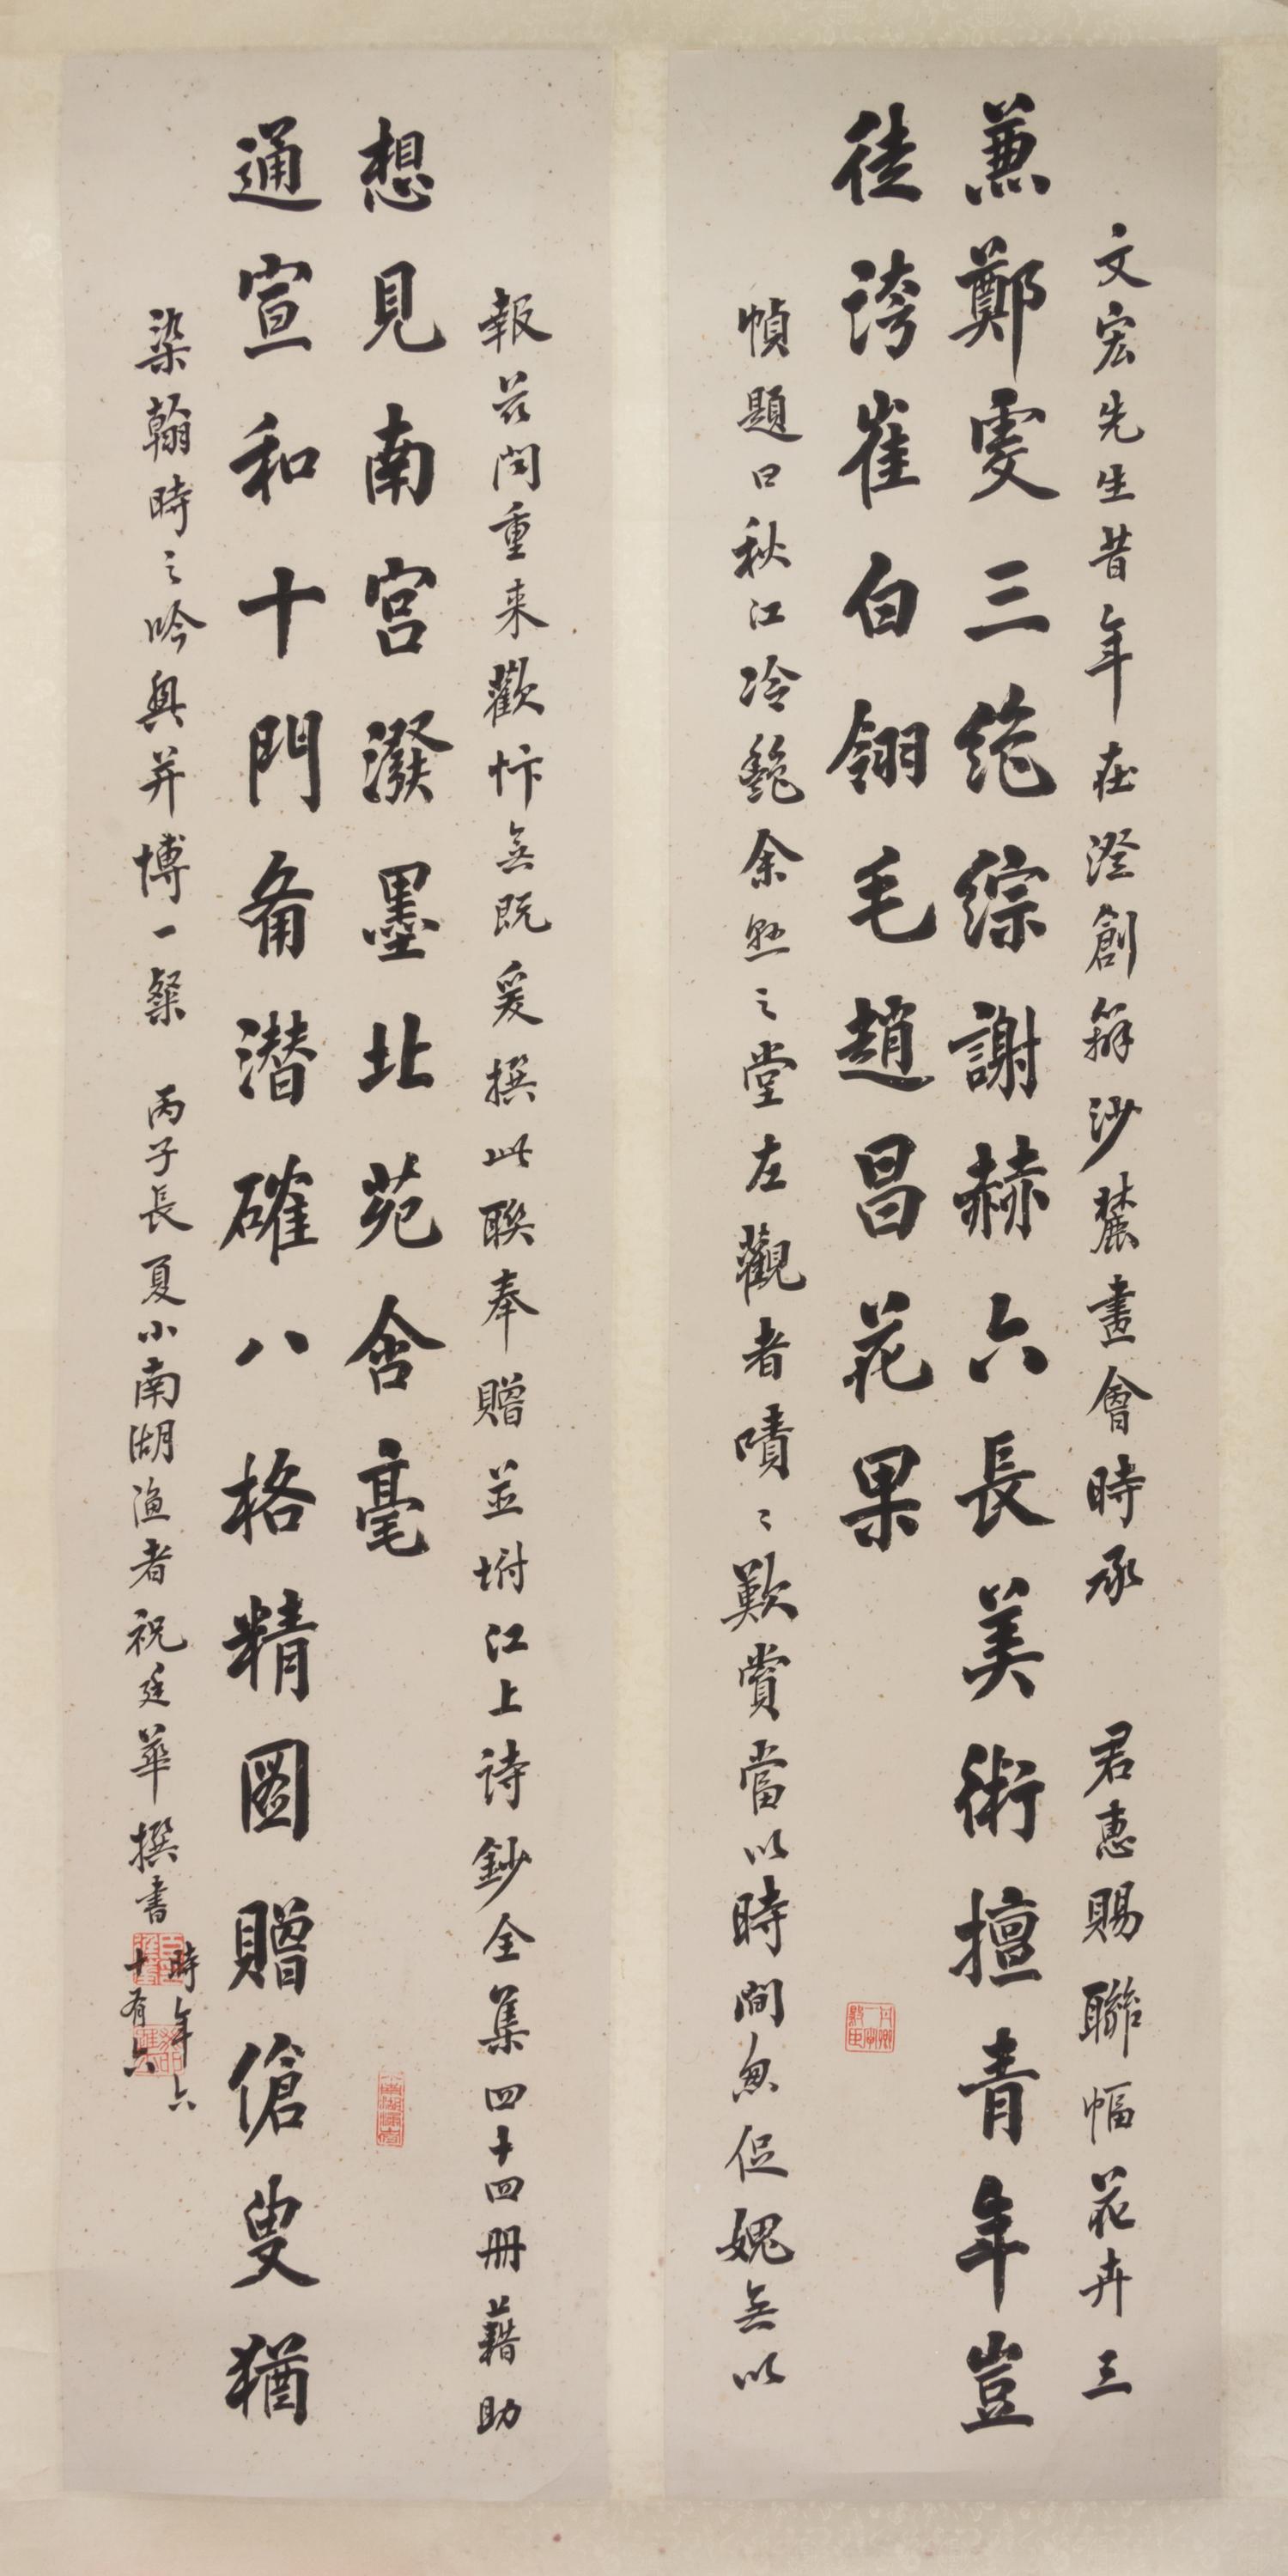 文宏先生昔年在澄創辦沙麓畫會時承　君惠賜聯幅花卉三
兼鄭虔三絕綜謝赫六長美術擅青年豈
徒誇崔白翎毛趙昌花果
幀題曰秋江冷艷余懸之堂左觀者嘖〻歎賞當以時間匆促媿無以
報茲聞重来歡忭無既爰撰此聯奉贈並坿江上诗鈔全集四十四冊藉助
想見南宮潑墨北苑含毫
通宣和十門備潜確八格精圖贈傖叟猶
染翰時之吟興并博一粲　丙子長夏小南湖渔者祝廷華撰書
時年六
十有六